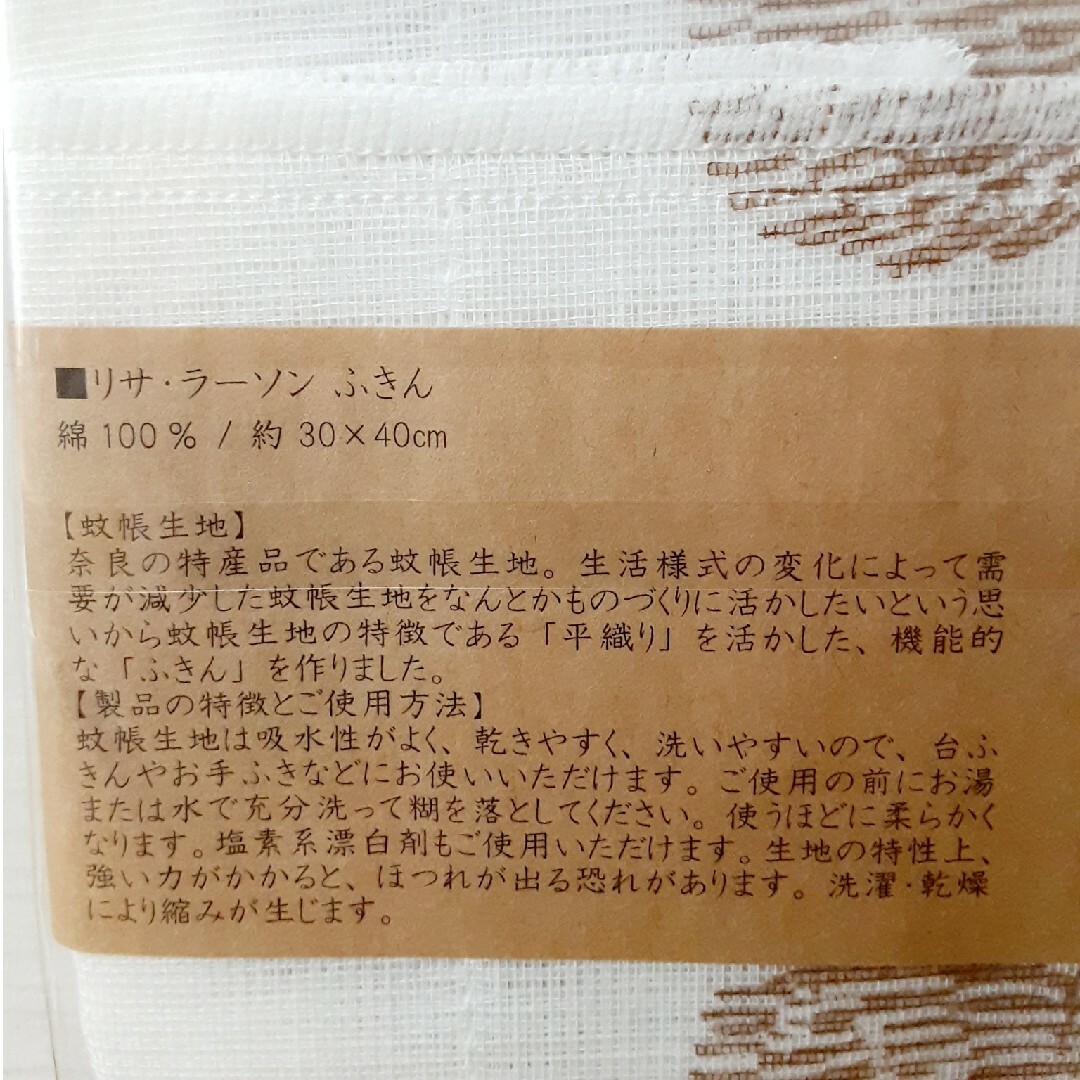 ■リサ・ラーソン ふきん
綿 100 % / 約 30×40cm
【蚊帳生地】
奈良の特産品である蚊帳生地。生活様式の変化によって需
要が減少した蚊帳生地をなんとかものづくりに活かしたいという思
いから蚊帳生地の特徴である「平織り」を活かした、機能的
な「ふきん」を作りました。
【製品の特徴とご使用方法】
蚊帳生地は吸水性がよく、乾きやすく、洗いやすいので、台ふ
きんやお手ふきなどにお使いいただけます。ご使用の前にお湯
または水で充分洗って糊を落としてください。使うほどに柔らかく
なります。塩素系漂白剤もご使用いただけます。生地の特性上、
強い力がかかると、ほつれが出る恐れがあります。洗濯・乾燥
により縮みが生じます。